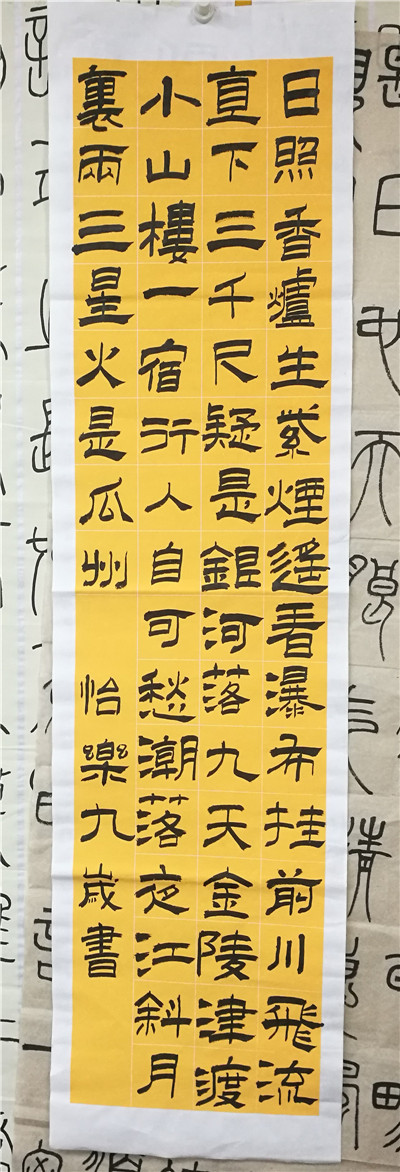 日照香爐生紫煙遙看瀑布挂前川飛流
直下三千尺疑是銀河落九天金陵津渡
小山樓一宿行人自可愁潮落夜江斜月
裏兩三星火是瓜州
怡樂九歲書